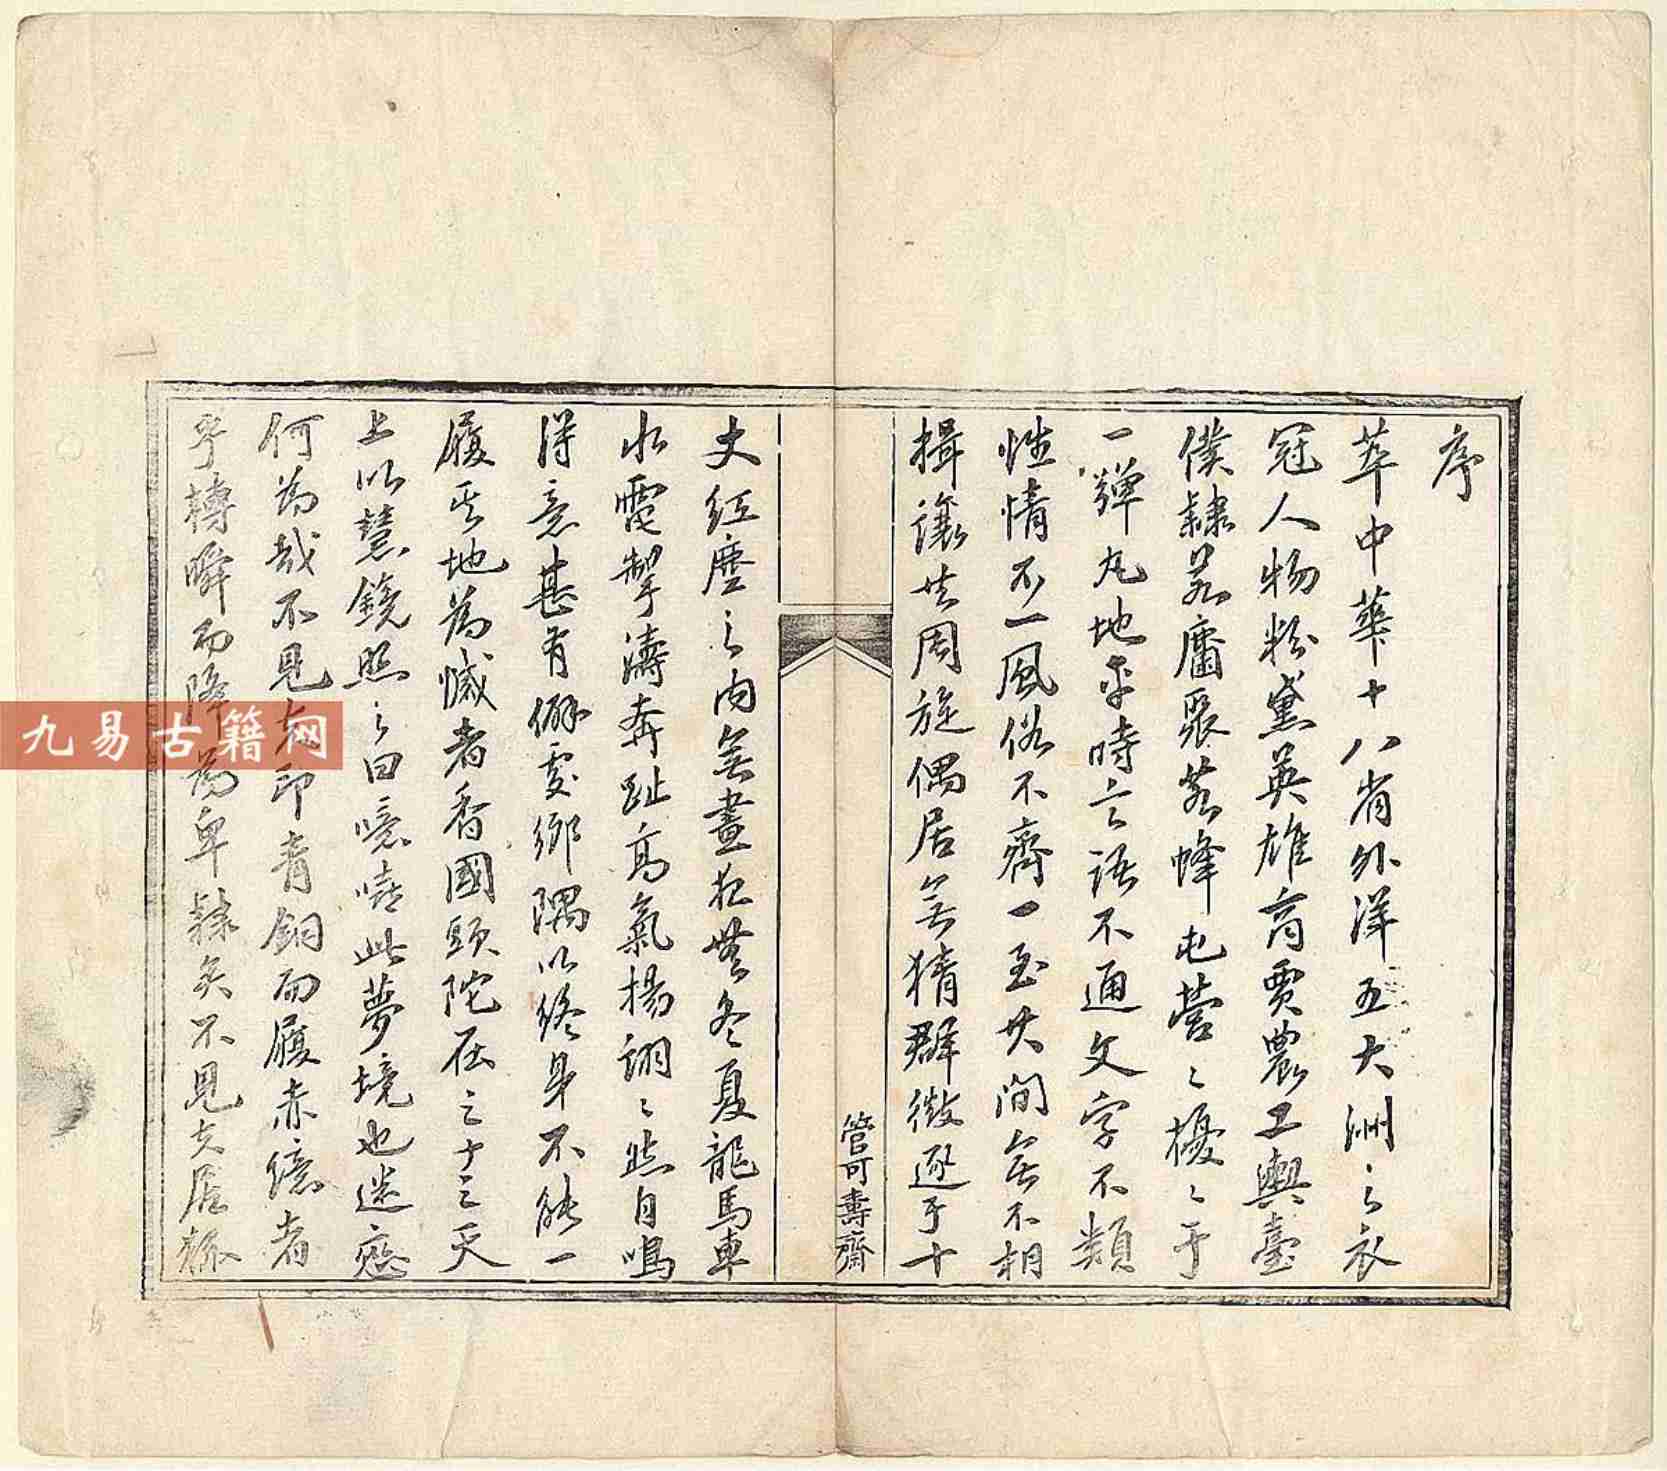 序
萃中華十八省外洋五大洲之衣
冠人物粉黛英雄商賈農工輿臺
僕隸若麕聚若蜂屯營〻擾〻于
一彈丸地平時言語不通文字不類
性情不一風俗不齊一至其間無不相
揖讓共周旋偶居無猜群微逐于十
丈紅塵之內無晝夜無冬夏龍馬車
水電掣濤奔趾高氣揚詡〻然自鳴
得意甚有僻處鄉隅以終身不能一
履其地為憾者香國頭陀在三十三天
上以慧鏡照之曰噫嘻此夢境也迷戀
何為哉不見夫印青銅而履赤繶者
乎轉瞬而降為皁隸矣不見夫居
管可壽齋
九易古籍网